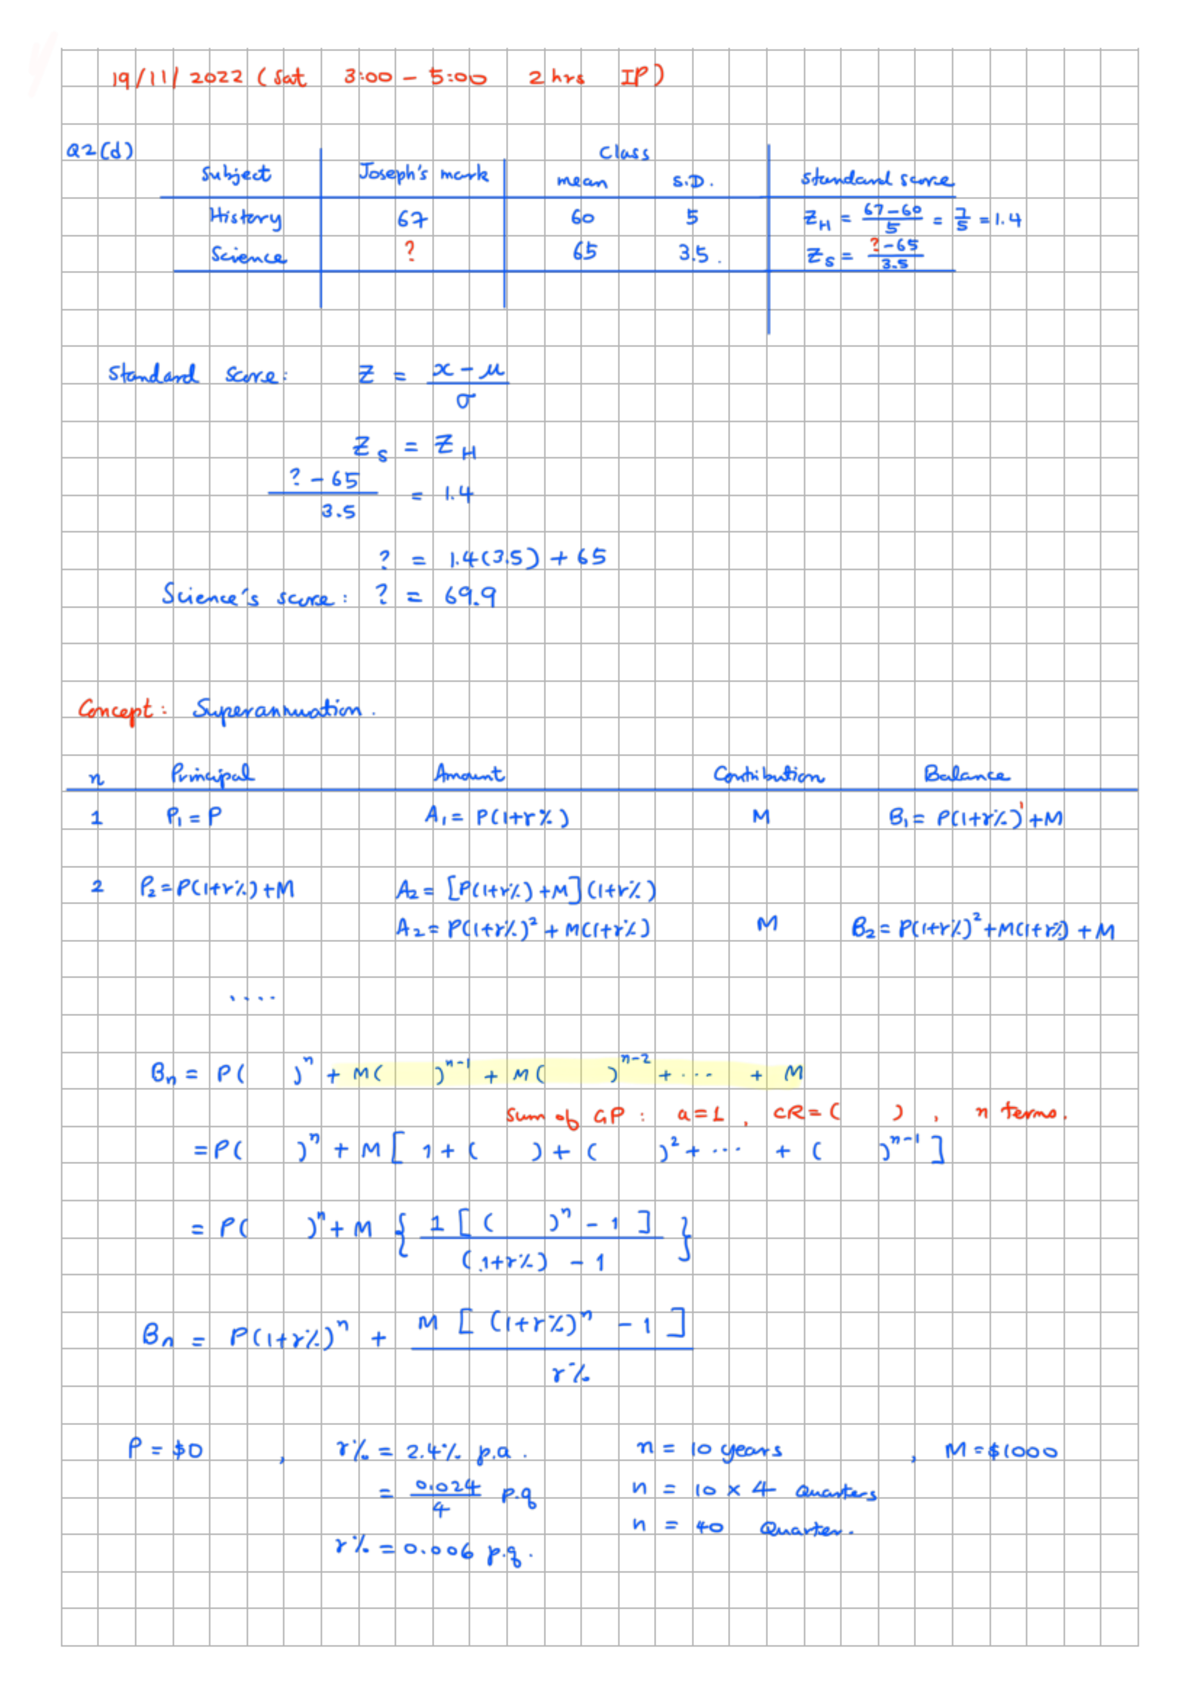 19/11/2022 (Sat 3:00 - 5:00 2 hrs IP)
Q2(d)
Class
Subject Joseph's mark mean S.D. standard score
History 67 60 5 Z_H = (67-60)/5 = 7/5 = 1.4
Science ? 65 3.5. Z_S = (?-65)/3.5
Standard score: Z = (x - μ)/σ
Z_S = Z_H
(? - 65)/3.5 = 1.4
? = 1.4(3.5) + 65
Science's score: ? = 69.9
Concept: Superannuation.
n Principal Amount Contribution Balance
1 P₁ = P A₁ = P(1+r%) M B₁ = P(1+r%)¹ + M
2 P₂ = P(1+r%) + M A₂ = [P(1+r%) + M](1+r%)
A₂ = P(1+r%)² + M(1+r%) M B₂ = P(1+r%)² + M(1+r%) + M
....
Bn = P( )ⁿ + M( )ⁿ⁻¹ + M( )ⁿ⁻² + ... + M
Sum of GP: a=1, CR=( ), n terms.
= P( )ⁿ + M[ 1 + ( ) + ( )² + ... + ( )ⁿ⁻¹ ]
= P( )ⁿ + M { 1[( )ⁿ - 1] / (1+r%) - 1 }
Bn = P(1+r%)ⁿ + M[(1+r%)ⁿ - 1] / r%
P = $0, r% = 2.4% p.a. n = 10 years, M = $1000
= 0.024/4 p.q n = 10 × 4 Quarters
n = 40 Quarter.
r% = 0.006 p.q.